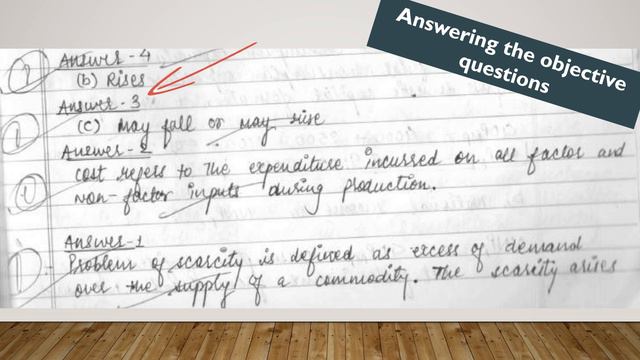 Answering the objective
questions
Answer - 4
(b) Rises
Answer - 3
(c) May fall or may rise
Answer - 2
Cost refers to the expenditure incurred on all factor and
non-factor inputs during production.
Answer-1
Problem of scarcity is defined as excess of demand
over the supply of a commodity. The scarcity arises